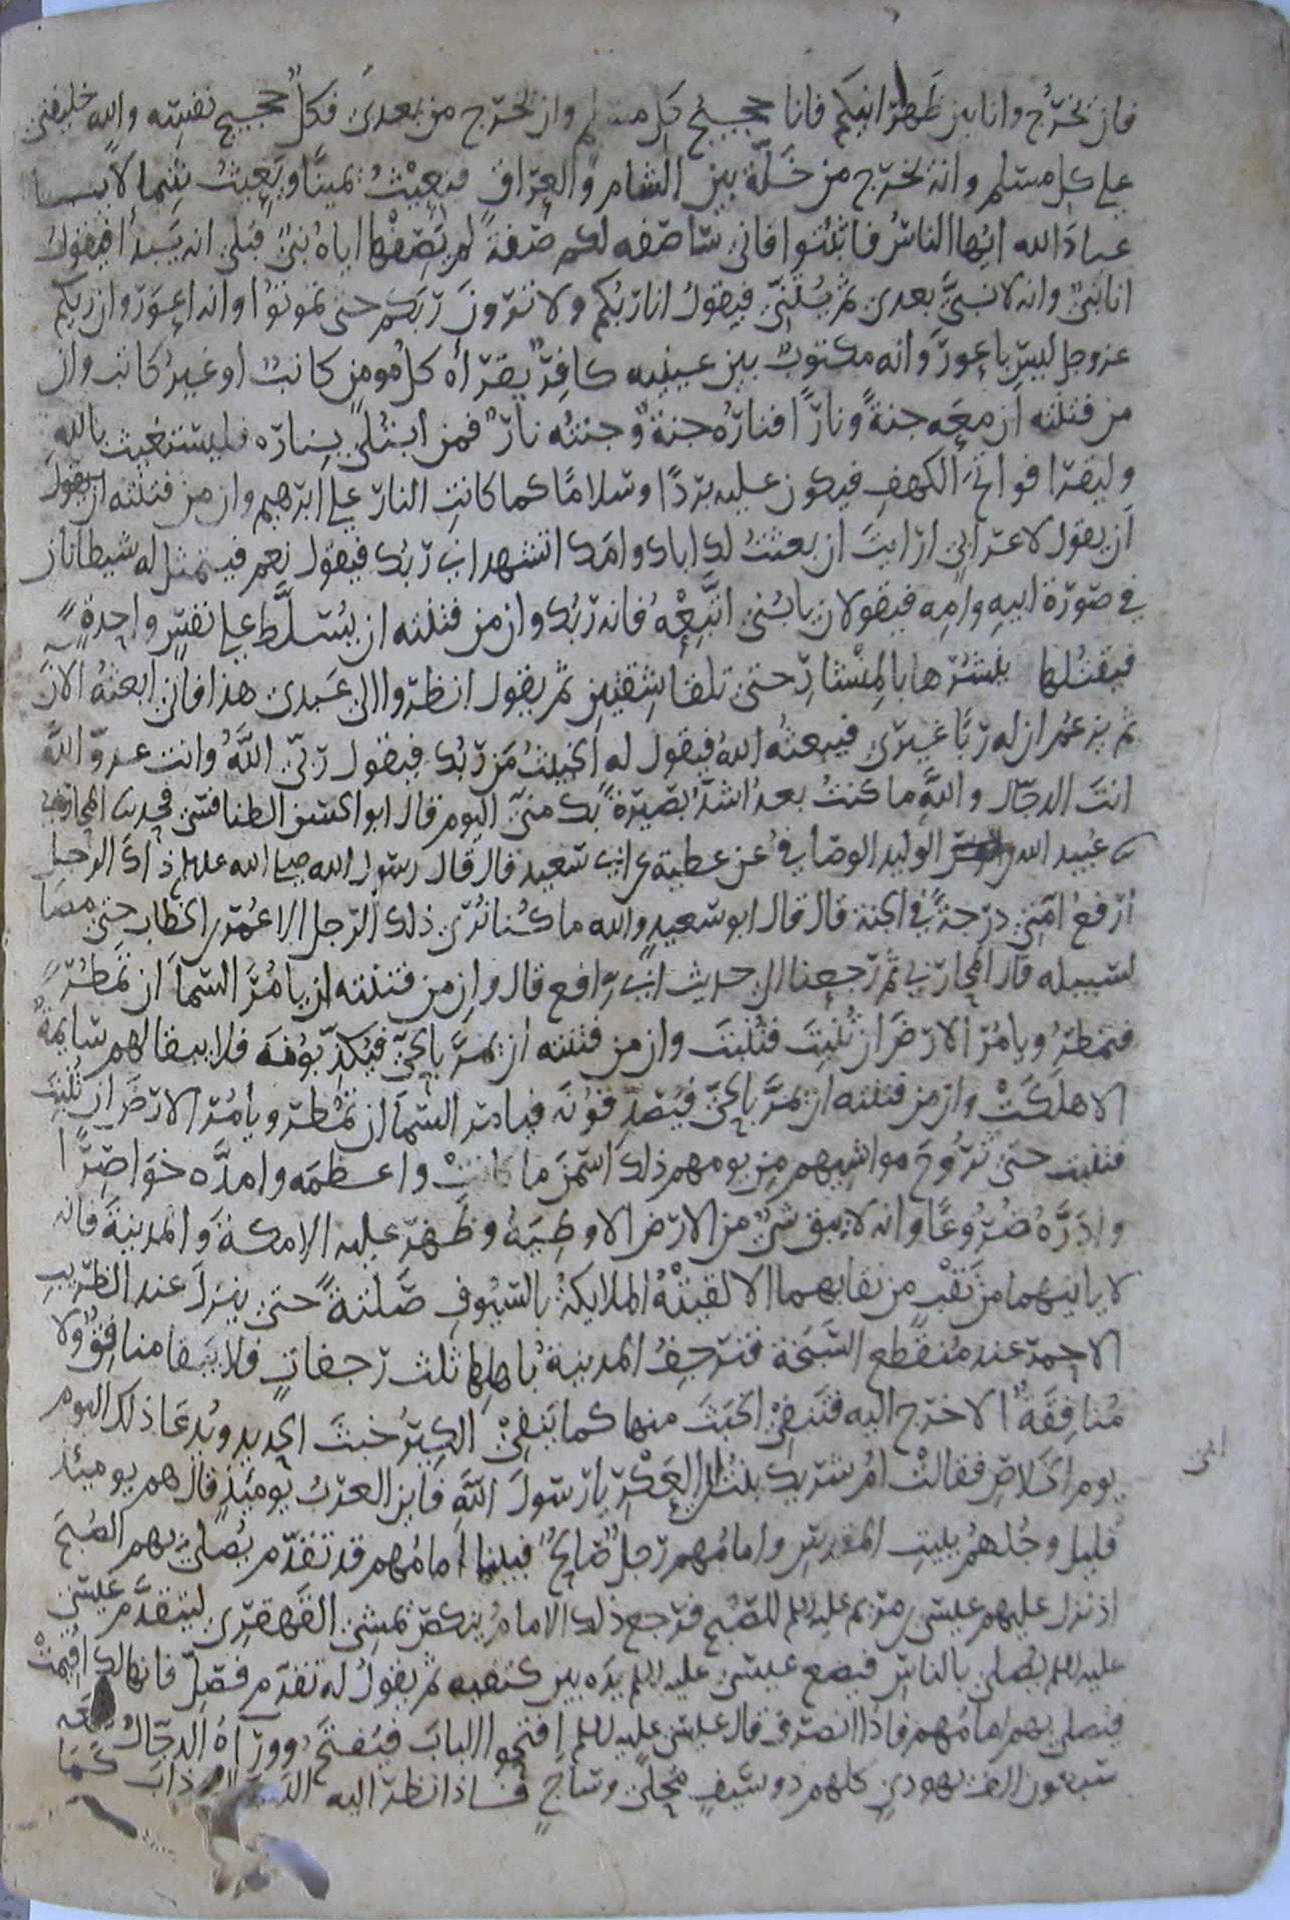 فان يخرج وانا بين ظهرانيكم فانا حجيج كل مسلم وان يخرج من بعدي فكل حجيج نفسه والله خليفتي
على كل مسلم وانه يخرج من خلة بين الشام والعراق فيعيث يمينا ويعيث شمالا يا
عباد الله ايها الناس فاثبتوا فاني ساصفه لكم صفة لم يصفها اياه نبي قبلي انه يبدأ فيقول
انا نبي وانه لا نبي بعدي ثم يثني فيقول انا ربكم ولا ترون ربكم حتى تموتوا وانه اعور وان ربكم
عز وجل ليس باعور وانه مكتوب بين عينيه كافر يقرأه كل مومن كاتب او غير كاتب وان
من فتنته ان معه جنة ونارا فناره جنة وجنته نار فمن ابتلي بناره فليستغيث بالله
وليقرا فواتح الكهف فيكون عليه بردا وسلاما كما كانت النار على ابرهيم وان من فتنته ان يقول
ان يقول لاعرابي ارايت ان بعثت لك اباك وامك اتشهد اني ربك فيقول نعم فيتمثل له شيطانان
في صورة ابيه وامه فيقولان يا بني اتبعه فانه ربك وان من فتنته ان يسلط على نفس واحدة
فيقتلها ينشرها بالمنشار حتى تلقا شقين ثم يقول انظروا الى عبدي هذا فاني ابعثه الان
ثم يزعم ان له ربا غيري فيبعثه الله فيقول له الخبيث من ربك فيقول ربي الله وانت عدو الله
انت الدجال والله ما كنت بعد اشد بصيرة بك مني اليوم قال ابو الحسن الطنافسي فحدثنا المحاربي
ثنا عبيد الله بن الوليد الوصافي عن عطية عن ابي سعيد قال قال رسول الله صلى الله عليه ذاك الرجل
ارفع امتي درجة في الجنة قال قال ابو سعيد والله ما كنا نرى ذلك الرجل الا عمر بن الخطاب حتى مضا
لسبيله قال المحاربي ثم رجعنا الى حديث ابي رافع قال وان من فتنته ان يامر السما ان تمطر
فتمطر ويامر الارض ان تنبت فتنبت وان من فتنته ان يمر بالحي فيكذبونه فلا يبقا لهم سايمة
الا هلكت وان من فتنته ان يمر بالحي فيصدقونه فيامر السما ان تمطر ويامر الارض ان تنبت
فتنبت حتى تروح مواشيهم من يومهم ذلك اسمن ما كانت واعظمه وامده خواصرا
وادره ضروعا وانه لا يبقى شي من الارض الا وطيه وظهر عليه الا مكة والمدينة فانه
لا ياتيهما من نقب من نقابهما الا لقيته الملايكة بالسيوف صلتة حتى ينزل عند الظريب
الاحمر عند منقطع السبخة فترجف المدينة باهلها ثلث رجفات فلا يبقا منافق ولا
منافقة الا خرج اليه فتنفي الخبث منها كما ينفي الكير خبث الحديد ويدعا ذلك اليوم
يوم الخلاص فقالت ام شريك بنت ابي العكر يا رسول الله فاين العرب يوميذ قال هم يوميذ
قليل وجلهم ببيت المقدس وامامهم رجل صالح فبينا امامهم قد تقدم يصلي بهم الصبح
اذ نزل عليهم عيسى بن مريم عليه السلم الصبح فرجع ذلك الامام ينكص يمشي القهقرى ليتقدم عيسى
عليه السلم يصلي بالناس فيضع عيسى عليه السلم يده بين كتفيه ثم يقول له تقدم فصل فانها لك اقيمت
فيصلي بهم امامهم فاذا انصرف قال عيسى عليه السلم افتحوا الباب فيفتح ووراه الدجال معه
سبعون الف يهودي كلهم ذو سيف محلى وساج فاذا نظر اليه ذاب كما